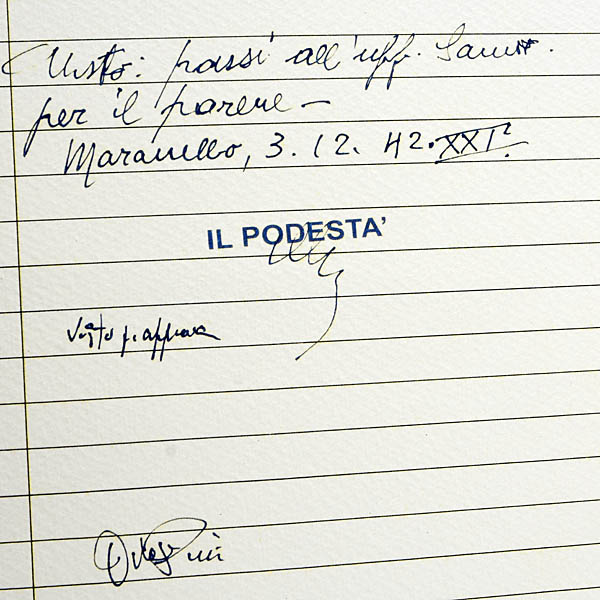 Visto: passi all'uff. Sanit.
per il parere –
Maranello, 3. 12. 42. XXIº
IL PODESTA'
Visto si approva